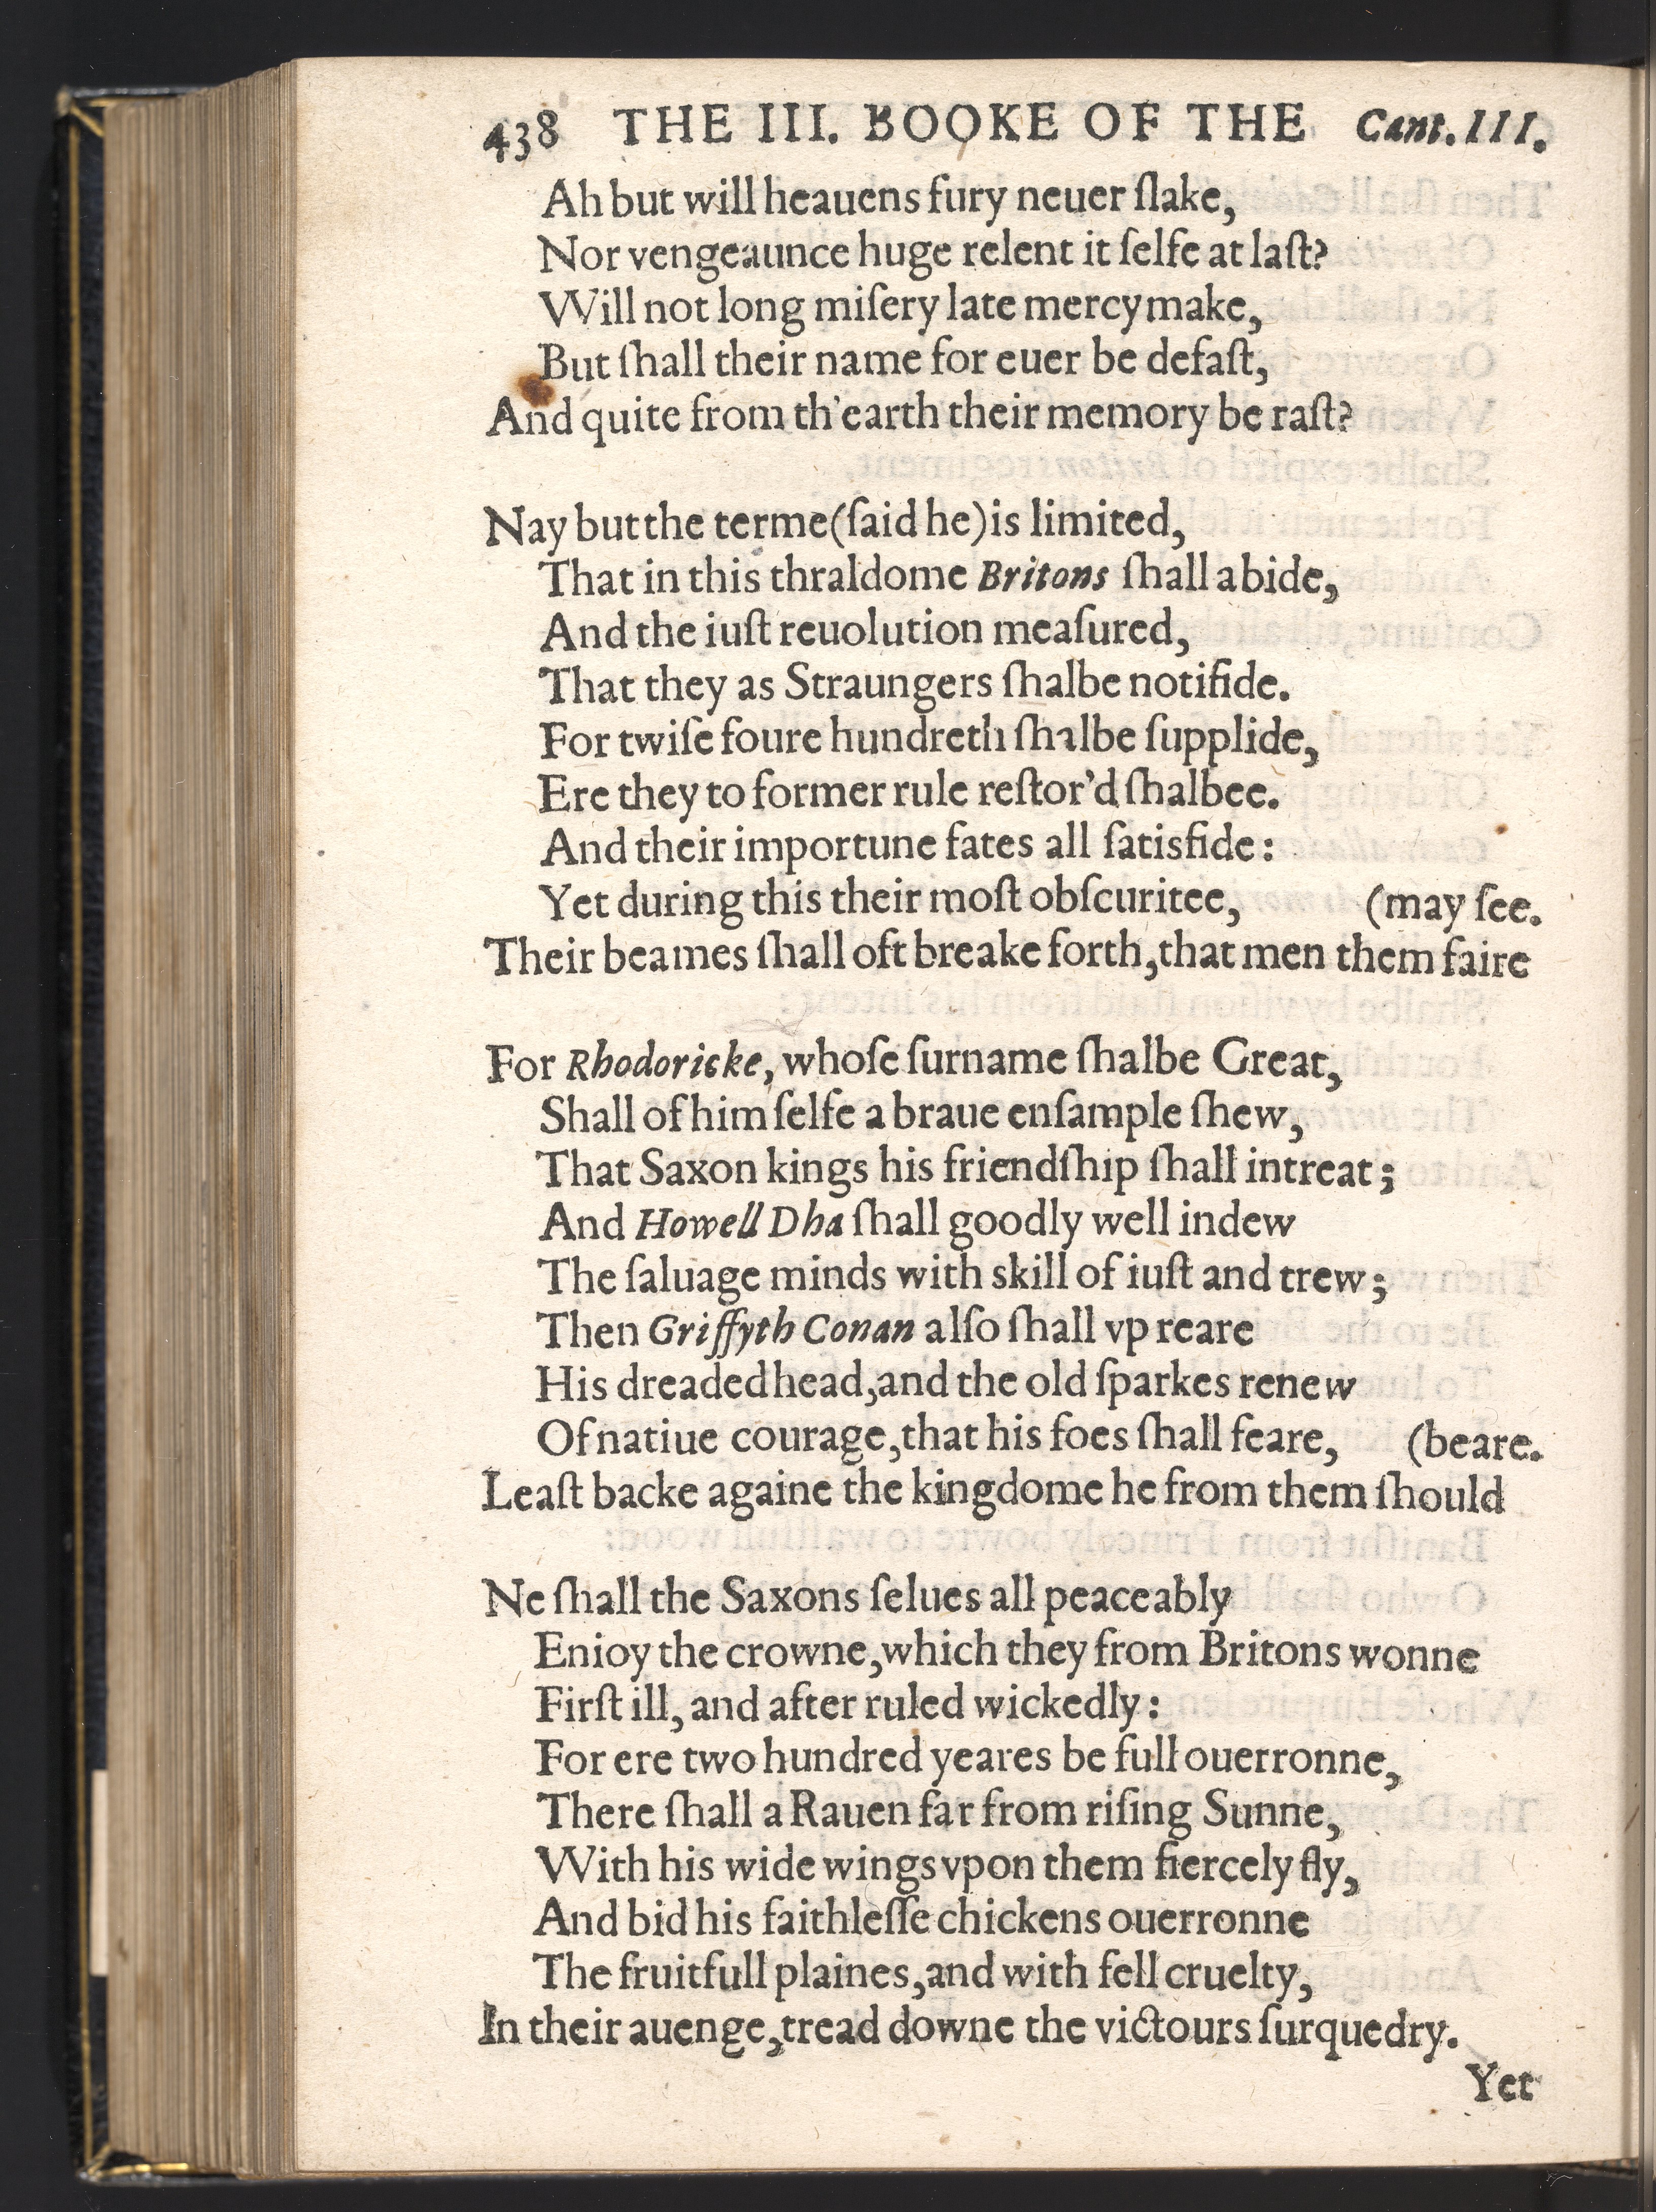 438 THE III. BOOKE OF THE Cant. III.
Ah but will heauens fury neuer ſlake,
Nor vengeaunce huge relent it ſelfe at laſt?
Will not long miſery late mercy make,
But ſhall their name for euer be defaſt,
And quite from th'earth their memory be raſt?
Nay but the terme (ſaid he) is limited,
That in this thraldome Britons ſhall abide,
And the iuſt reuolution meaſured,
That they as Straungers ſhalbe notifide.
For twiſe foure hundreth ſhalbe ſupplide,
Ere they to former rule reſtor'd ſhalbee.
And their importune fates all ſatisfide:
Yet during this their moſt obſcuritee, (may ſee.
Their beames ſhall oft breake forth, that men them faire
For Rhodoricke, whoſe ſurname ſhalbe Great,
Shall of him ſelfe a braue enſample ſhew,
That Saxon kings his friendſhip ſhall intreat;
And Howell Dha ſhall goodly well indew
The ſaluage minds with skill of iuſt and trew;
Then Griffyth Conan alſo ſhall vp reare
His dreaded head, and the old ſparkes renew
Of natiue courage, that his foes ſhall feare, (beare.
Leaſt backe againe the kingdome he from them ſhould
Ne ſhall the Saxons ſelues all peaceably
Enioy the crowne, which they from Britons wonne
Firſt ill, and after ruled wickedly:
For ere two hundred yeares be full ouerronne,
There ſhall a Rauen far from riſing Sunne,
With his wide wings vpon them fiercely fly,
And bid his faithleſſe chickens ouerronne
The fruitfull plaines, and with fell cruelty,
In their auenge, tread downe the victours ſurquedry.
Yet